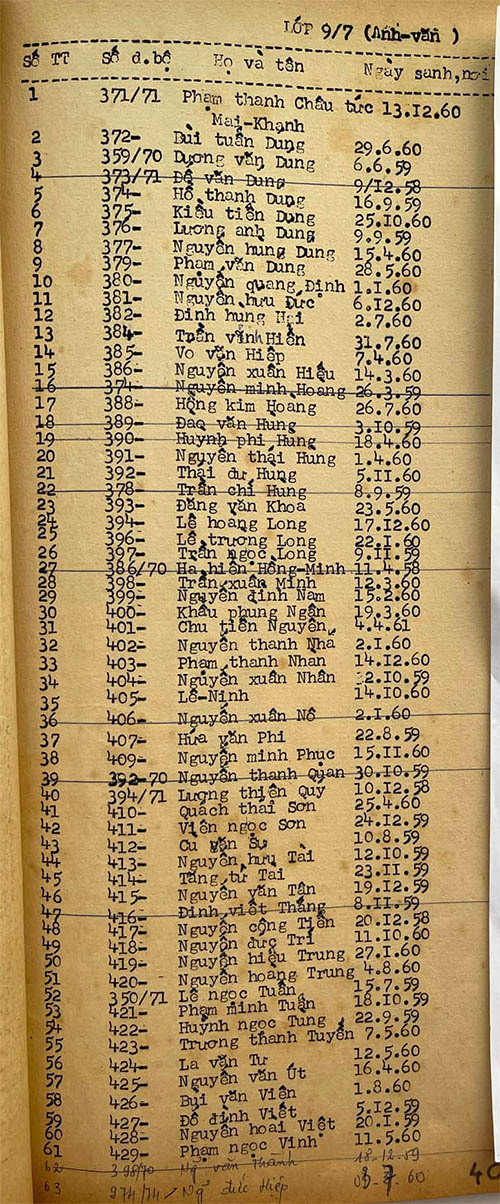 LỚP 9/7 (Anh-văn )
Số TT Số d.bộ Họ và tên Ngày sanh,nơi
1 371/71 Phạm thanh Châu tức 13.I2.60
Mai-Khanh
2 372- Bùi tuấn Dung 29.6.60
3 359/70 Dương văn Dung 6.6.59
4 373/71 Đỗ văn Dung 9/I2.58
5 374- Hồ thanh Dung 16.9.59
6 375- Kiều tiến Dung 25.I0.60
7 376- Lương anh Dung 9.9.59
8 377- Nguyễn hung Dung 15.4.60
9 379- Phạm văn Dung 28.5.60
10 380- Nguyễn quang Định I.I.60
11 381- Nguyễn hưu Đức 6.I2.60
12 382- Đinh hung Hại 2.7.60
13 384- Trần vinh Hiển 31.7.60
14 385- Vo văn Hiệp 7.4.60
15 386- Nguyễn xuân Hiệu 14.3.60
16 374- Nguyễn minh Hoang 26.3.59
17 388- Hồng kim Hoàng 26.7.60
18 389- Đao văn Hung 3.I0.59
19 390- Huynh phi Hung 18.4.60
20 391- Nguyễn thái Hung I.4.60
21 392- Thái dư Hung 5.II.60
22 378- Trần chi Hung 8.9.59
23 393- Đăng văn Khoa 23.5.60
24 394- Lê hoang Long 17.I2.60
25 396- Lê trương Long 22.I.60
26 397- Trần ngọc Long 9.II.59
27 386/70 Ha hiển Hồng-Minh 11.4.58
28 398- Trần xuân Minh I2.3.60
29 399- Nguyễn đinh Nam 15.2.60
30 400- Khấu phung Ngân 19.3.60
31 401- Chu tiến Nguyên 4.4.61
32 402- Nguyễn thanh Nhã 2.I.60
33 403- Phạm thanh Nhan 14.I2.60
34 404- Nguyễn xuân Nhân I2.I0.59
35 405- Lê-Ninh 14.I0.60
36 406- Nguyễn xuân Nô 2.I.60
37 407- Hứa văn Phi 22.8.59
38 409- Nguyễn minh Phục 15.II.60
39 392-70 Nguyễn thanh Quan 30.I0.59
40 394/71 Lương thiện Quy I0.I2.58
41 410- Quách thái Sơn 25.4.60
42 411- Viên ngọc Sơn 24.I2.59
43 412- Cu văn Sự I0.8.59
44 413- Nguyễn hưu Tài I2.I0.59
45 414- Tăng tư Tai 23.II.59
46 415- Nguyễn văn Tân 19.I2.59
47 416- Đinh viết Thắng 8.II.59
48 417- Nguyễn công Tiến 20.I2.58
49 418- Nguyễn đức Tri 11.I0.60
50 419- Nguyễn hiệu Trung 27.I.60
51 420- Nguyễn hoang Trung 4.8.60
52 350/71 Lê ngọc Tuấn 15.7.59
53 421- Phạm minh Tuấn 18.I0.59
54 422- Huỳnh ngọc Tung 22.9.59
55 423- Trương thanh Tuyền 7.5.60
56 424- La văn Tư I2.5.60
57 425- Nguyễn văn Út 16.4.60
58 426- Bụi văn Viên I.8.60
59 427- Đỗ đinh Viết 5.I2.59
60 428- Nguyễn hoai Việt 20.I.59
61 429- Phạm ngọc Vinh 11.5.60
62 398/70 Ng̃ văn Thành 18.12.59
63 974/74 Ng̃ đức Hiếp 60
40